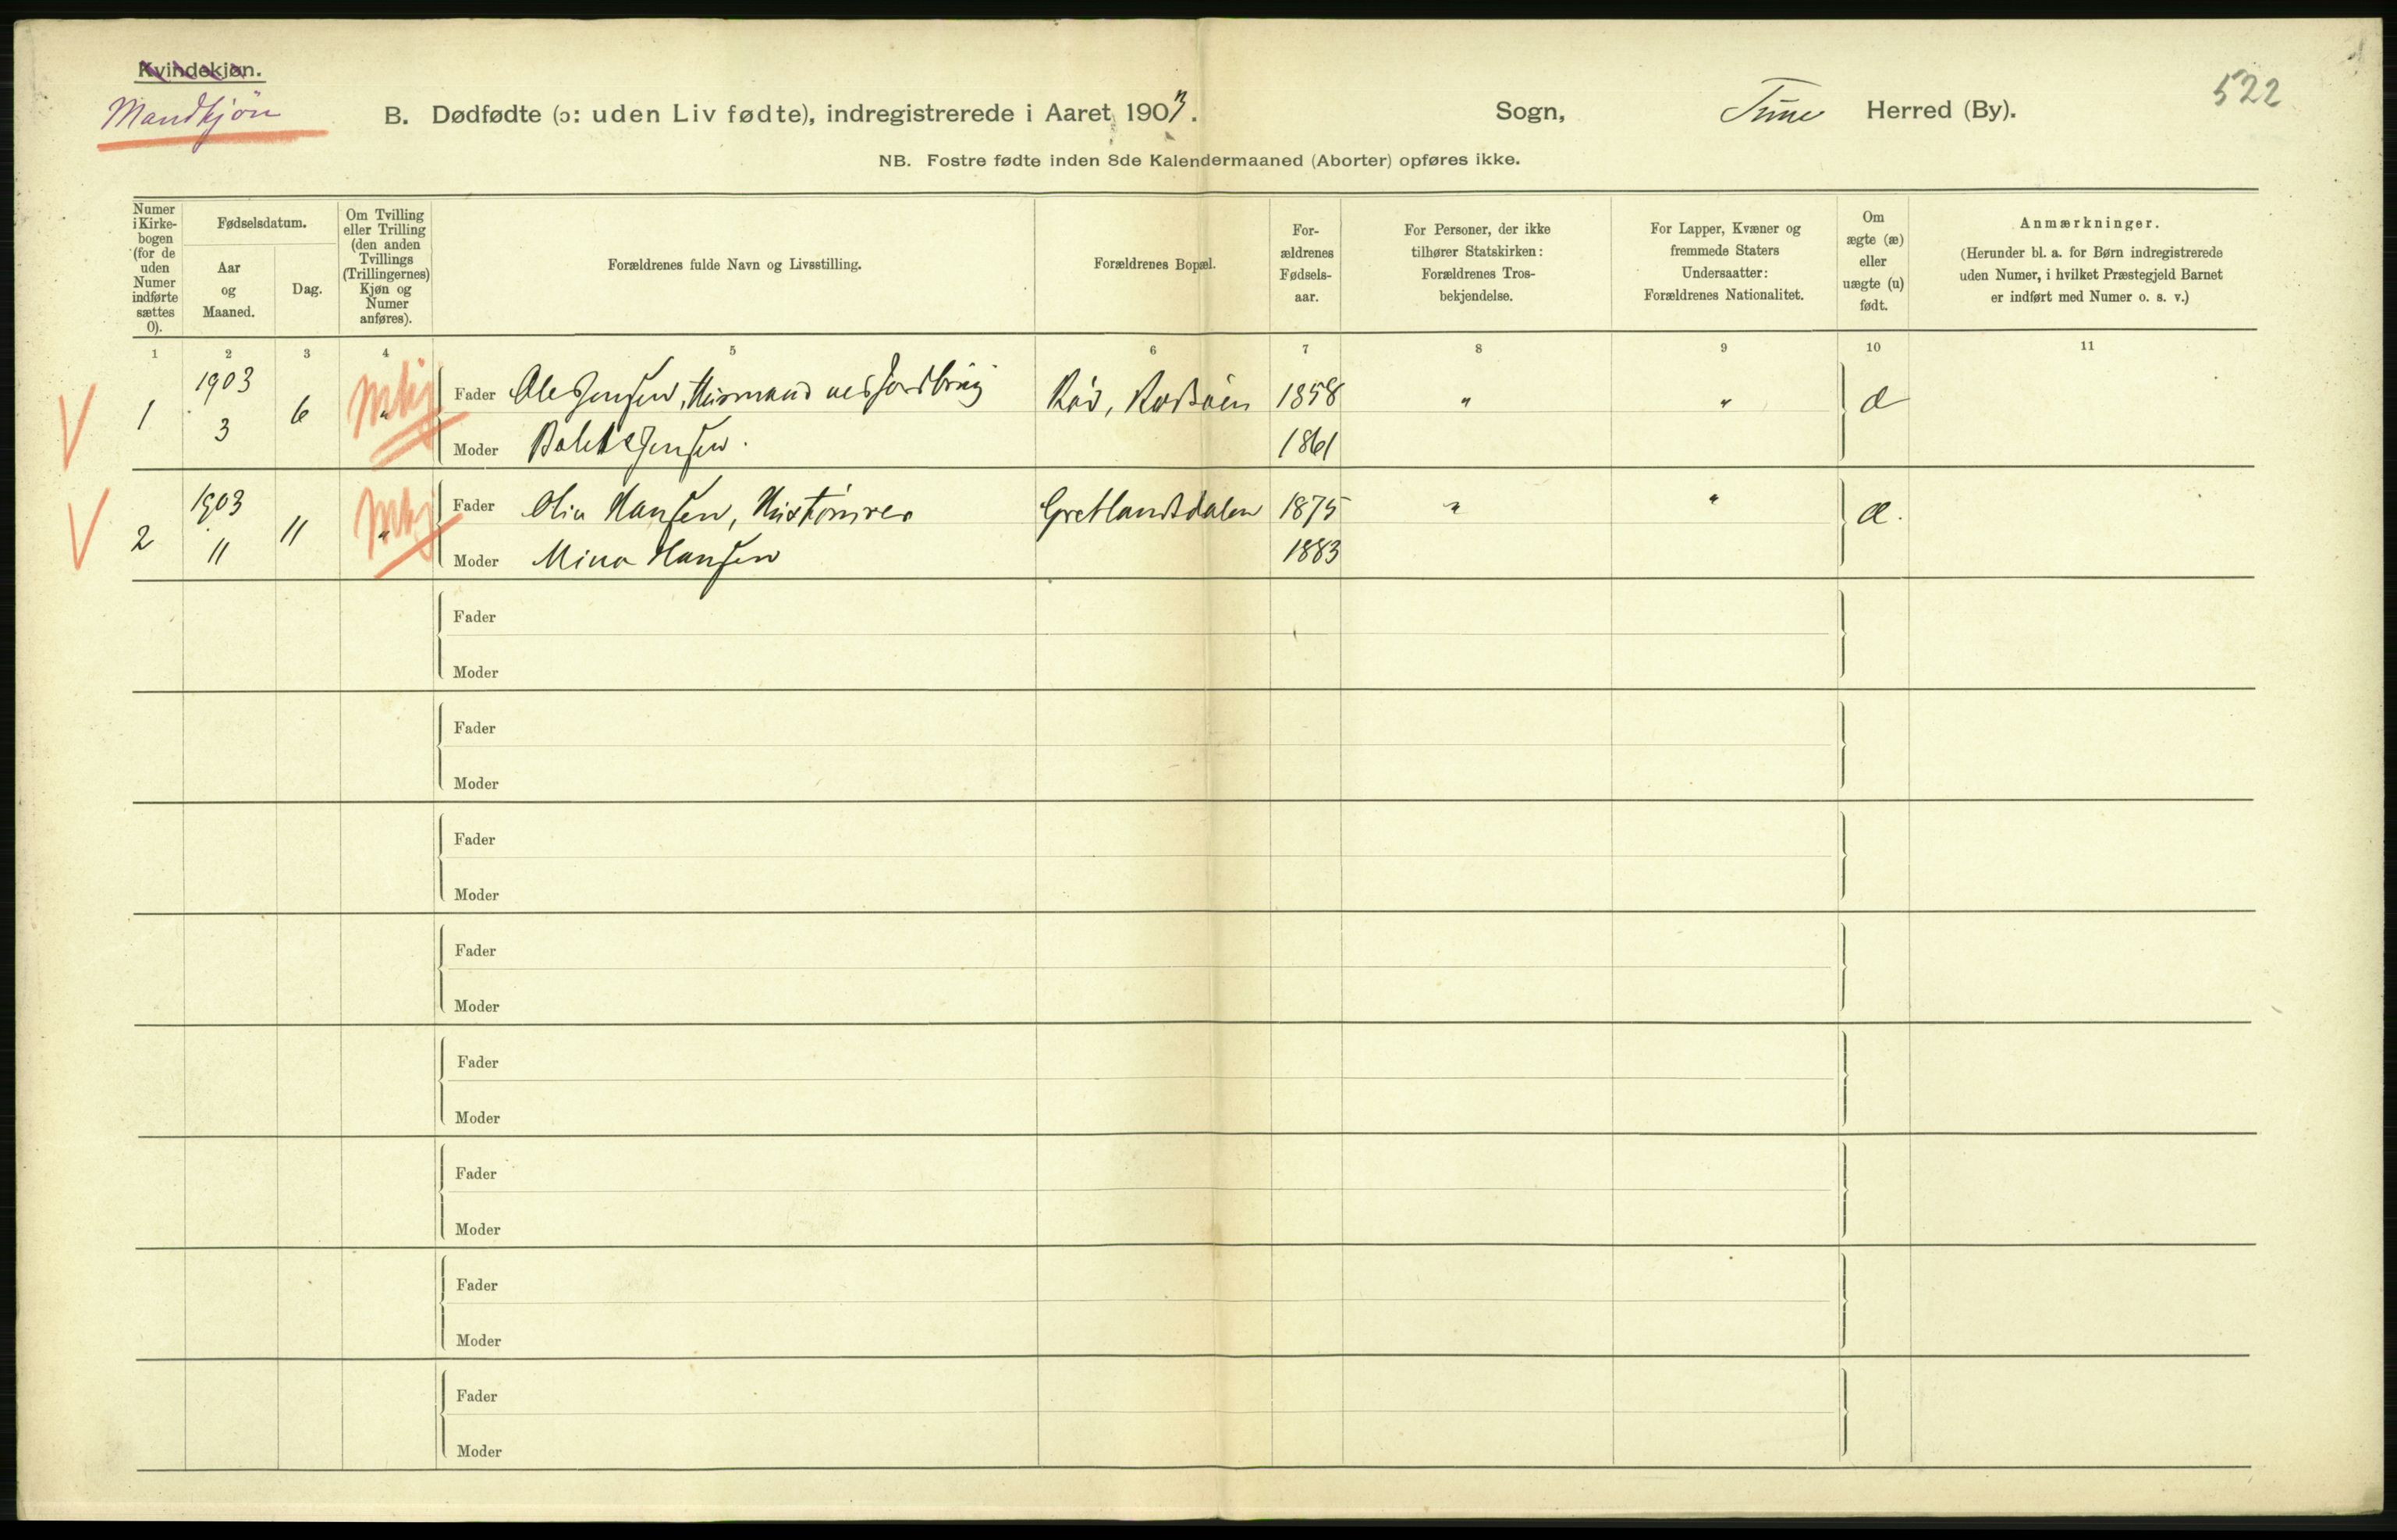 Kvindekjøn.
Mandkjøn
B. Dødfødte (ɔ: uden Liv fødte), indregistrerede i Aaret 1903. Sogn, Tune Herred (By).
522
NB. Fostre fødte inden 8de Kalendermaaned (Aborter) opføres ikke.
Numer i Kirke-bogen (for de uden Numer indførte sættes 0).
Fødselsdatum.
Aar og Maaned.
Dag.
Om Tvilling eller Trilling (den anden Tvillings (Trillingernes) Kjøn og Numer anføres).
Forældrenes fulde Navn og Livsstilling.
Forældrenes Bopæl.
For-ældrenes Fødsels-aar.
For Personer, der ikke tilhører Statskirken: Forældrenes Tros-bekjendelse.
For Lapper, Kvæner og fremmede Staters Undersaatter: Forældrenes Nationalitet.
Om ægte (æ) eller uægte (u) født.
Anmærkninger.
(Herunder bl. a. for Børn indregistrerede uden Numer, i hvilket Præstegjeld Barnet er indført med Numer o. s. v.)
1 2 3 4 5 6 7 8 9 10 11
V 1 1903 3 6 Mkj " Fader Ole Jensen, Husmand med Jordbrug Rød, 1858 " " æ
Moder Jensen. 1861
V 2 1903 11 11 Mkj " Fader Hansen, Gretlandsdalen 1875 " " æ.
Moder Mina Hansen 1883
Fader
Moder
Fader
Moder
Fader
Moder
Fader
Moder
Fader
Moder
Fader
Moder
Fader
Moder
Fader
Moder